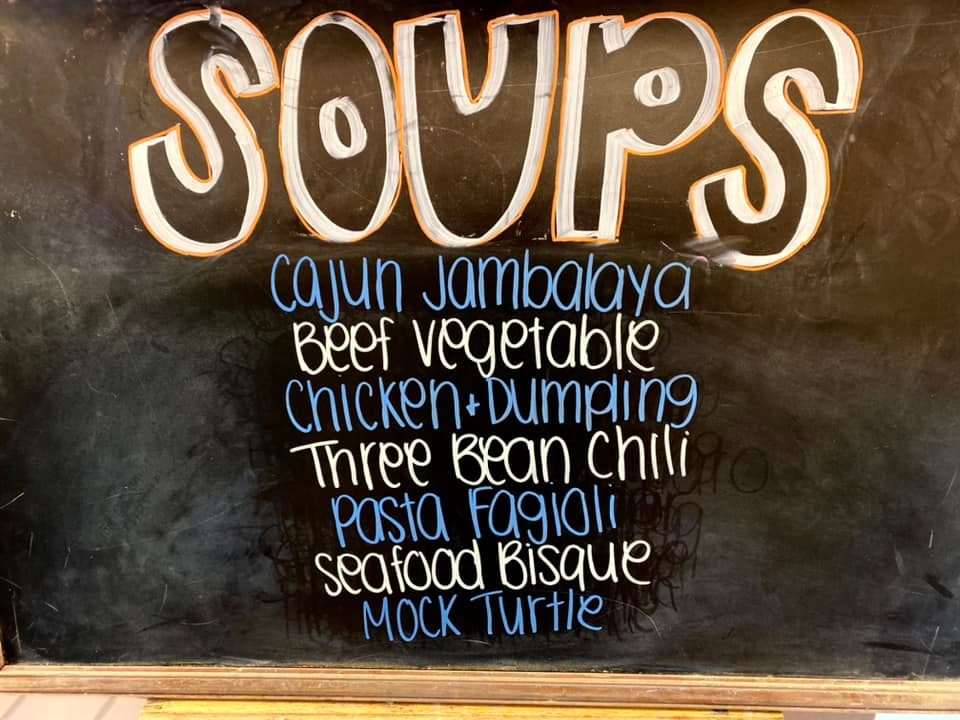 SOUPS
Cajun Jambalaya
Beef Vegetable
Chicken + Dumpling
Three Bean Chili
Pasta Fagioli
Seafood Bisque
Mock Turtle